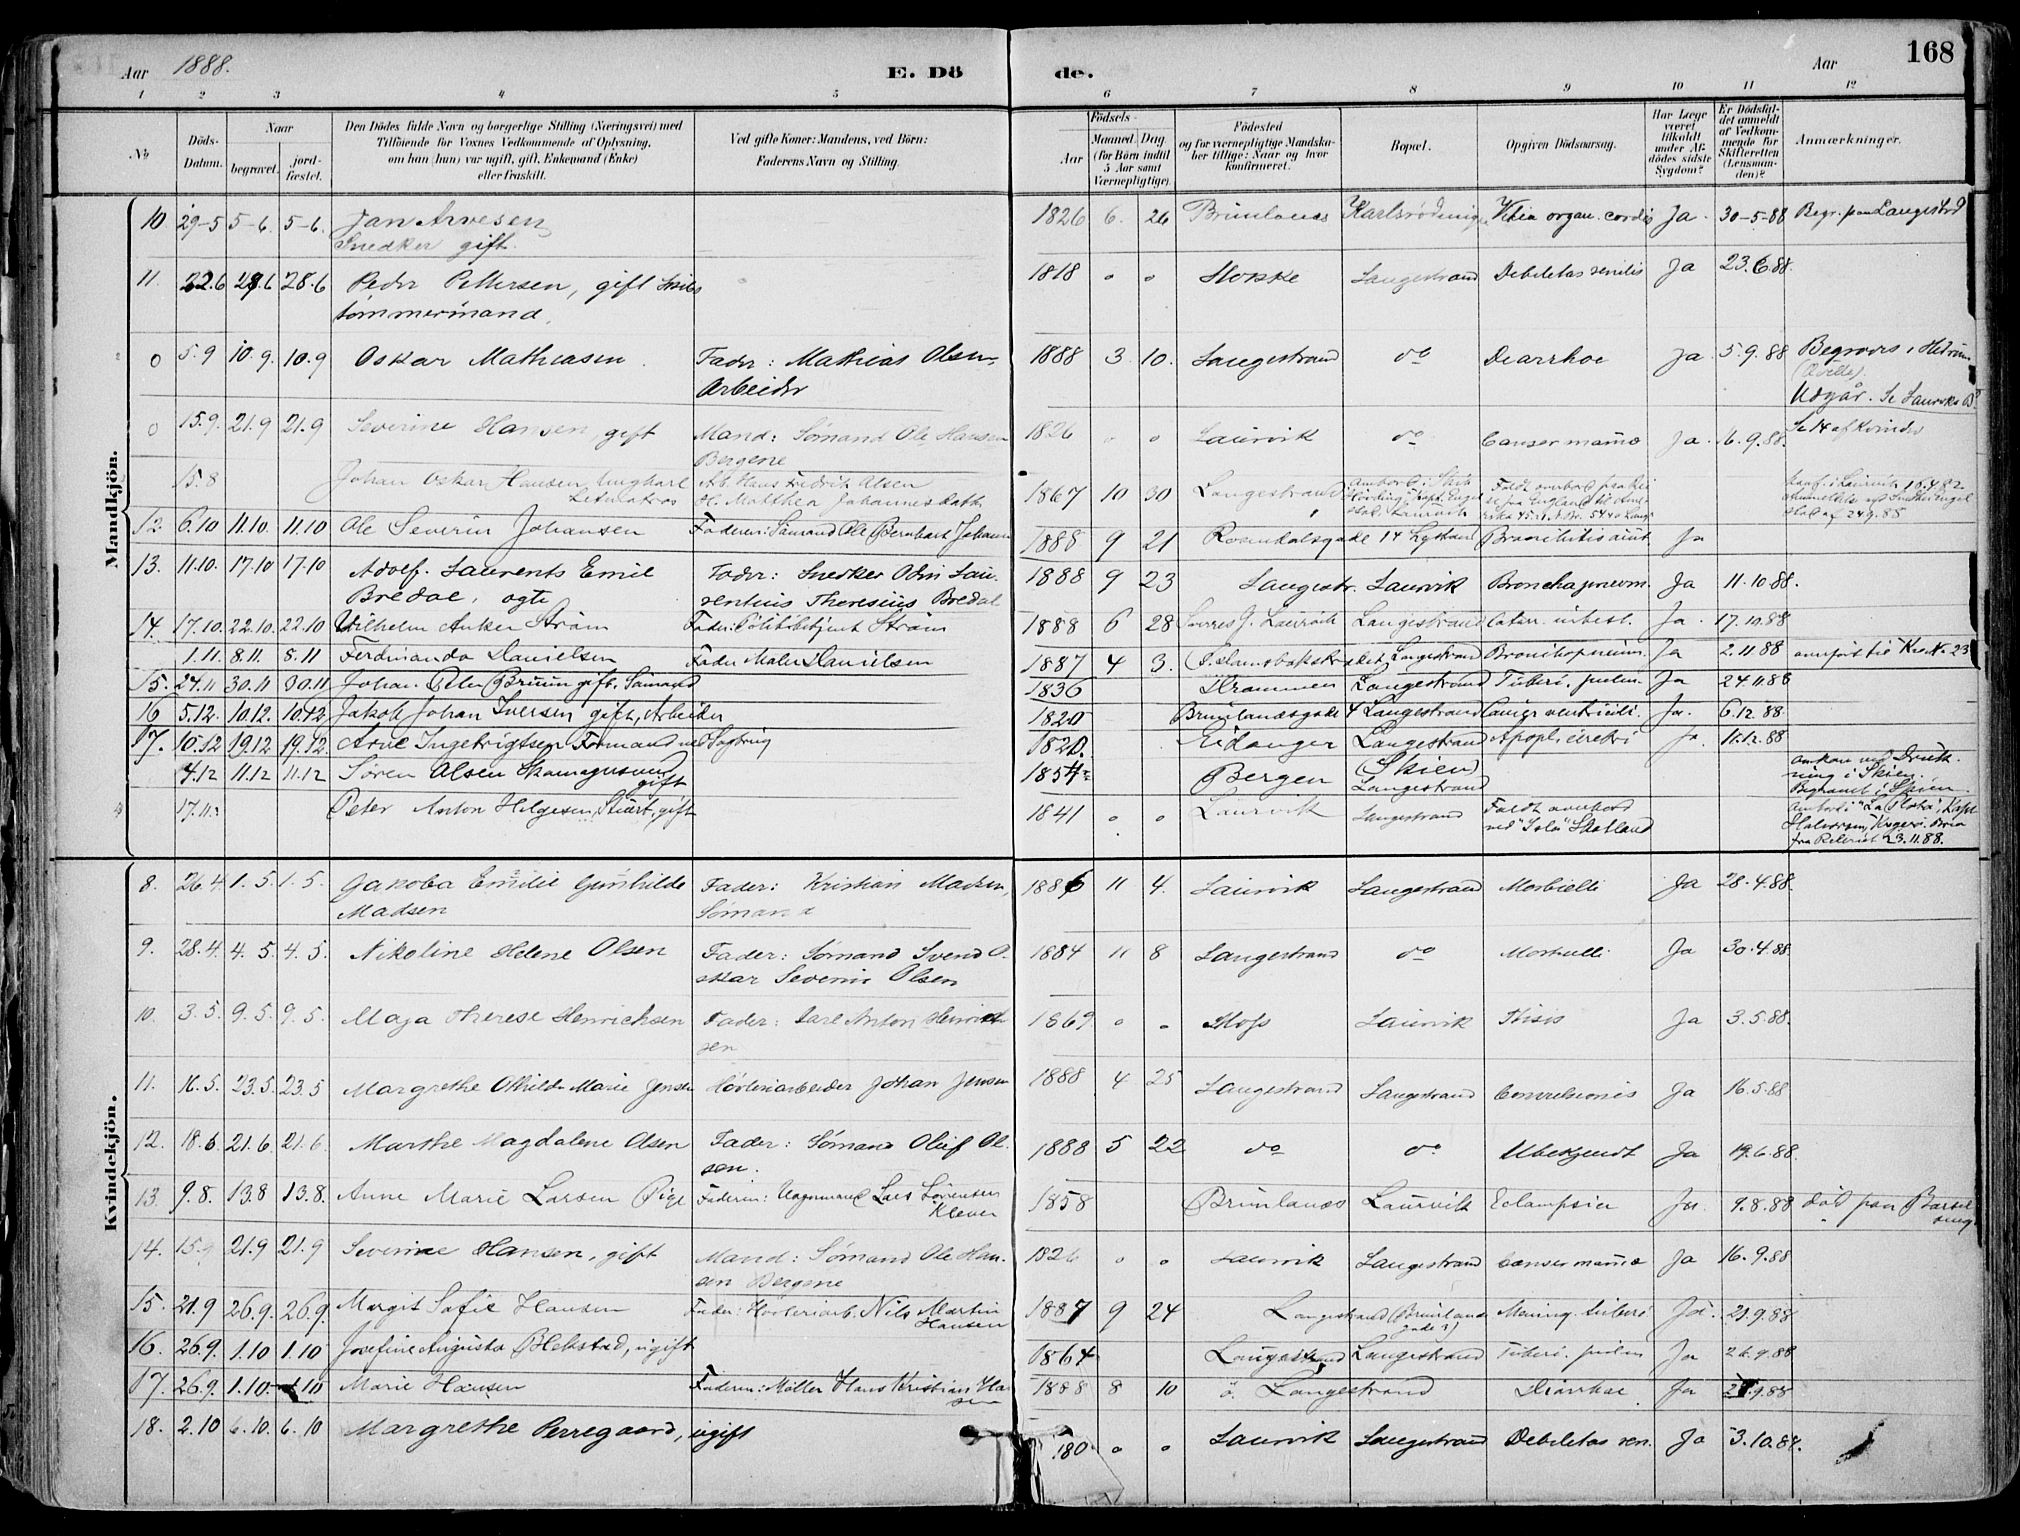 Aar 1888. E. Dö de. Aar 168
1 2 3 4 5 6 7 8 9 10 11 12
No
Döds-Datum.
Naar
begravet.
jord-fæstet.
Den Dödes fulde Navn og borgerlige Stilling (Næringsvei) med
Tilföiende for Voxnes Vedkommende af Oplysning,
om han (hun) var ugift, gift, Enkemand (Enke)
eller fraskilt.
Ved gifte Koner: Mandens, ved Börn:
Faderens Navn og Stilling.
Födsels-
Aar
Maaned. Dag.
(for Börn indtil
5 Aar samt
Værnepligtige).
Födested
og for værnepligtige Mandska-
ber tillige: Naar og hvor
konfirmeret.
Bopæl.
Opgiven Dödsaarsag.
Har Læge
været
tilkaldt
under Af-
dödes sidste
Sygdom?
Er Dödsfal-
det anmeldt
af Vedkom-
mende for
Skifteretten
(Lensman-
den)?
Anmærkninger.
Mandkjön.
10 29-5 5-6. 5-6. Jan Arvesen 1826 6. 26 Brunlanæs Vitia organ. cordis Ja. 30-5-88 Begr. paa Langestrd
Snedker gift.
11. 22.6 28.6 28.6 Peder Pettersen, gift Skibs 1818 " " Langestrand Debilitas senilis Ja 23.6.88.
tømmermand.
0 5.9 10.9. 10.9 Oskar Mathiasen. Fader: Mathias Olsen, 1888 3. 10. Langestrand do Diarrhoe Ja 5.9.88 Begraves i Hedrum
Arbeider
Udgår. Se Laurviks B.
0 15.9. 21.9 21.9 Severine Hansen, gift Mand: Sømand Ole Hansen 1826 " " Laurvik do Cancer mamæ Ja. 16.9.88. Se 14 af Kvinder
Bergene
15.8 Johan Oskar Hansen, Ungkarl Arb. Hans Fredrik Olsen 1867 10 30 Langestrand
12 6.10 11.10 11.10 Ole Severin Johansen Faderen: Sømand Ole Bernhart Johansen 1888 9 21 Rosendalsgade 14 Bronchitis acut. Ja
13. 11.10. 17.10 17.10 Adolf Laurents Emil Fader: Snedker Odin Lau- 1888 9 23 Langestr. Laurvik Bronchopneum. Ja 11.10.88.
Bredal, ægte rentius Theresius Bredal
14. 17.10. 22.10. 22.10 Wilhelm Anker Strøm Fader: Politibetjent Strøm 1888 6 28 Langestrand Catarr. intest. Ja. 17.10.88
1.11. 8.11. 8.11 Ferdinanda Danielsen Fader Maler Danielsen 1887 4 3. Langestrand Bronchopneum. Ja 2.11.88 anført til Kv. N. 23
15. 24.11 30.11 30.11 Johan Peter Bruun gift, Sømand 1836 Drammen Langestrand Tuberc. pulm. Ja 24.11.88
16 5.12. 10.12. 10.12 Jakob Johan Iversen gift, Arbeider 1820 Brunlandsgade 4 Langestrand Cancer ventriculi. Ja. 6.12.88.
17. 10.12 19.12 19.12. Arve Ingebrigtsen Formand ved Sagbrug 1820. Eidanger Langestrand Apopl. cerebri Ja 11.12.88
4.12 11.12 11.12 Søren Olsen Skomagersvend 1854 Bergen (Skien) omkom ved Drukning i Skien.
gift Langestrand Begravet i Skien.
17.11. Peter Anton Helgesen, Stuart, gift 1841 " " Laurvik Langestrand Faldt overbord
ved "Isla" Skotland fra Retsrist 23.11.88.
Kvindekjön.
8. 26.4. 1.5. 1.5. Jakoba Emilie Gunhilde Fader: Kristian Madsen, 1886 11 4. Laurvik Langestrand Morbilli Ja 28.4.88.
Madsen Sømand
9. 28.4. 4.5. 4.5. Nikoline Helene Olsen Fader: Sømand Svend O- 1884 11 8 Langestrand do Morbilli Ja 30.4.88.
skar Severin Olsen
10. 3.5. 9.5. 9.5. Maja Therese Henrichsen Fader: Carl Anton Henrich- 1869 " " Moss Laurvik Thisis Ja 3.5.88.
sen
11. 16.5. 23.5 23.5 Margrethe Othilde Marie Jensen Høvleriarbeider Johan Jensen 1888 4 25 Langestrand Langestrand Convulsiones Ja 16.5.88
12. 18.6 21.6 21.6 Marthe Magdalene Olsen Fader: Sømand Oluf Ol- 1888 5 22 do do Ubekjendt Ja 19.6.88.
sen.
13. 9.8. 13.8 13.8. Anne Marie Larsen Pige Faderen: Vognmand Lars Sørensen 1858 Brunlanæs Laurvik Eclampsia Ja 9.8.88 død paa Barsel
Kleven seng
14. 15.9 21.9 21.9 Severine Hansen, gift Mand: Sømand Ole Han- 1826 " " Laurvik Langestrand Cancer mamæ Ja 16.9.88
sen Bergene
15. 21.9 26.9. 26.9. Margit Sofie Hansen Fader: Høvleriarb. Nils Martin 1887 9 24 Langestrand (Brunland Mening. tuberc. Ja. 21.9.88
Hansen gade 3)
16. 26.9. 1.10 1.10 Josefine Augusta Blekstad, ugift 1864 Langestrand Langestrand Tuberc. pulm Ja 26.9.88
17. 26.9. 1.10. 1.10 Marie Hansen Faderen: Møller Hans Kristian Han- 1888 8 10 Langestrand Diarrhoe Ja 27.9.88
sen
18. 2.10 6.10. 6.10 Margrethe Perregaard, ugift 180 " " Laurvik Langestrand Debilitas sen. Ja 3.10.88.